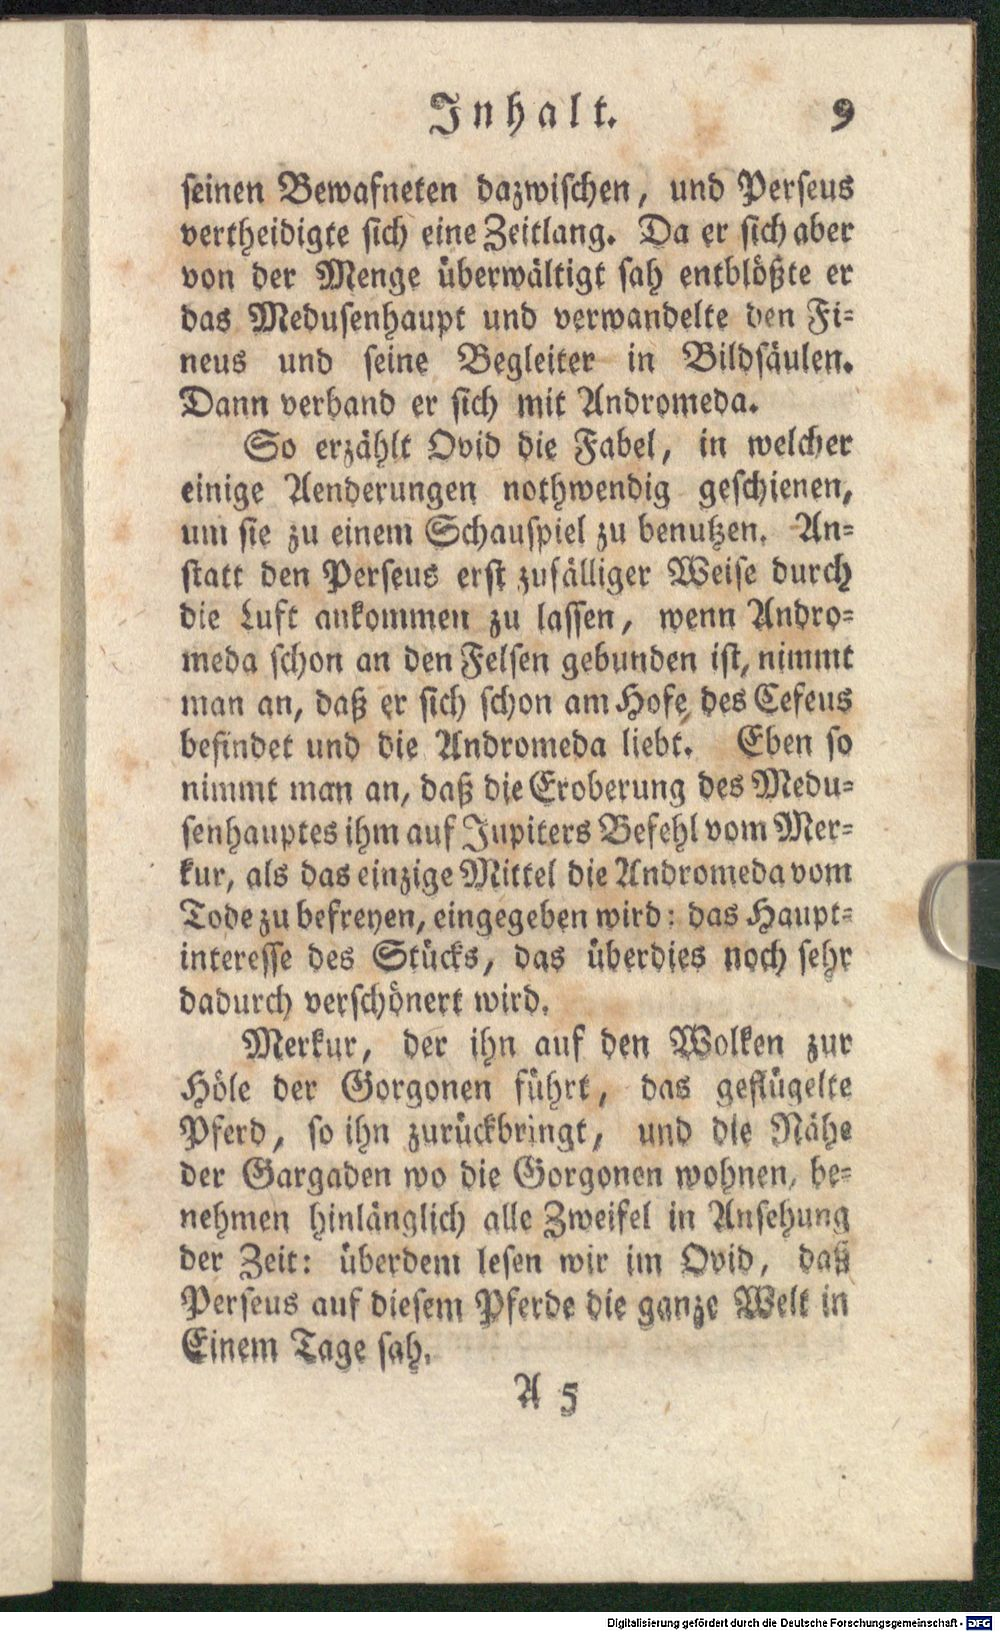 Inhalt. 9
seinen Bewafneten dazwischen, und Perseus
vertheidigte sich eine Zeitlang. Da er sich aber
von der Menge überwältigt sah entblößte er
das Medusenhaupt und verwandelte den Fi-
neus und seine Begleiter in Bildsäulen.
Dann verband er sich mit Andromeda.
So erzählt Ovid die Fabel, in welcher
einige Aenderungen nothwendig geschienen,
um sie zu einem Schauspiel zu benutzen. An-
statt den Perseus erst zufälliger Weise durch
die Luft ankommen zu lassen, wenn Andro-
meda schon an den Felsen gebunden ist, nimmt
man an, daß er sich schon am Hofe des Cefeus
befindet und die Andromeda liebt. Eben so
nimmt man an, daß die Eroberung des Medu-
senhauptes ihm auf Jupiters Befehl vom Mer-
kur, als das einzige Mittel die Andromeda vom
Tode zu befreyen, eingegeben wird: das Haupt-
interesse des Stücks, das überdies noch sehr
dadurch verschönert wird.
Merkur, der ihn auf den Wolken zur
Höle der Gorgonen führt, das geflügelte
Pferd, so ihn zurückbringt, und die Nähe
der Gargaden wo die Gorgonen wohnen, be-
nehmen hinlänglich alle Zweifel in Ansehung
der Zeit: überdem lesen wir im Ovid, daß
Perseus auf diesem Pferde die ganze Welt in
Einem Tage sah.
A 5
Digitalisierung gefördert durch die Deutsche Forschungsgemeinschaft - DFG